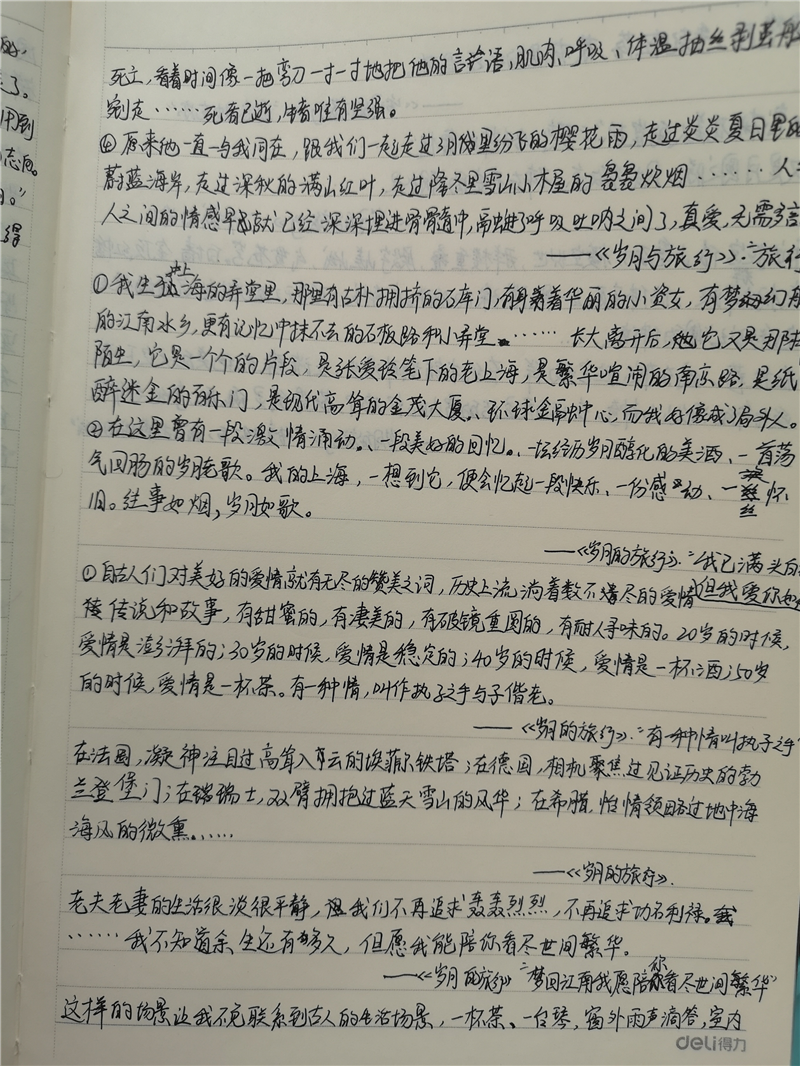 死亡,看着时间像一把弯刀一寸一寸地把他的言语、肌肉、呼吸、体温抽丝剥茧般
剥走……死者已逝,生者唯有坚强。
④原来他一直与我同在,跟我们一起走过3月城里纷飞的樱花雨,走过炎炎夏日里的
蔚蓝海岸,走过深秋的满山红叶,走过隆冬里雪山小木屋的袅袅炊烟……人与
人之间的情感早就已经深深埋进骨髓中,融进了呼吸吐呐之间了,真爱,无需多言
——《岁月与旅行》."旅行
①我生于上海的弄堂里,那里有古朴拥挤的石库门,有身着华丽的小资女,有梦幻
的江南水乡,更有记忆中抹不去的石板路和小弄堂……长大离开后,它又是那样
陌生,它是一个个的片段,是张爱玲笔下的老上海,是繁华喧闹的南京路,是纸
醉迷金的百乐门,是现代高耸的金茂大厦、环球金融中心,而我好像成了局外人。
②在这里曾有一段激情涌动、一段美好的回忆、一坛经历岁月醇化的美酒、一首荡
气回肠的岁月歌。我的上海,一想到它,便会忆起一段快乐、一份感动、一丝怀
旧。往事如烟,岁月如歌。
——《岁月的旅行》."我已满头白
①自古人们对美好的爱情就有无尽的赞美之词,历史上流淌着数不尽的爱情 但我爱你如
传说和故事,有甜蜜的,有凄美的,有破镜重圆的,有耐人寻味的。20岁的时候,
爱情是澎湃的;30岁的时候,爱情是稳定的;40岁的时候,爱情是一杯酒;50岁
的时候,爱情是一杯茶。有一种情,叫作执子之手与子偕老。
——《岁月的旅行》."有一种情叫执子之手
在法国,凝神注目过高耸入云的埃菲尔铁塔;在德国,相机聚焦过见证历史的勃
兰登堡门;在瑞士,双臂拥抱过蓝天雪山的风华;在希腊,怡情领略过地中海
海风的微熏……
——《岁月的旅行》.
老夫老妻的生活很淡很平静,我们不再追求轰轰烈烈,不再追求功名利禄。
……我不知道余生还有多久,但愿我能陪你看尽世间繁华。
——《岁月的旅行》"梦回江南我愿陪你看尽世间繁华"
这样的场景让我不免联系到古人的生活场景,一杯茶、一台琴,窗外雨声滴答,室内
deli得力